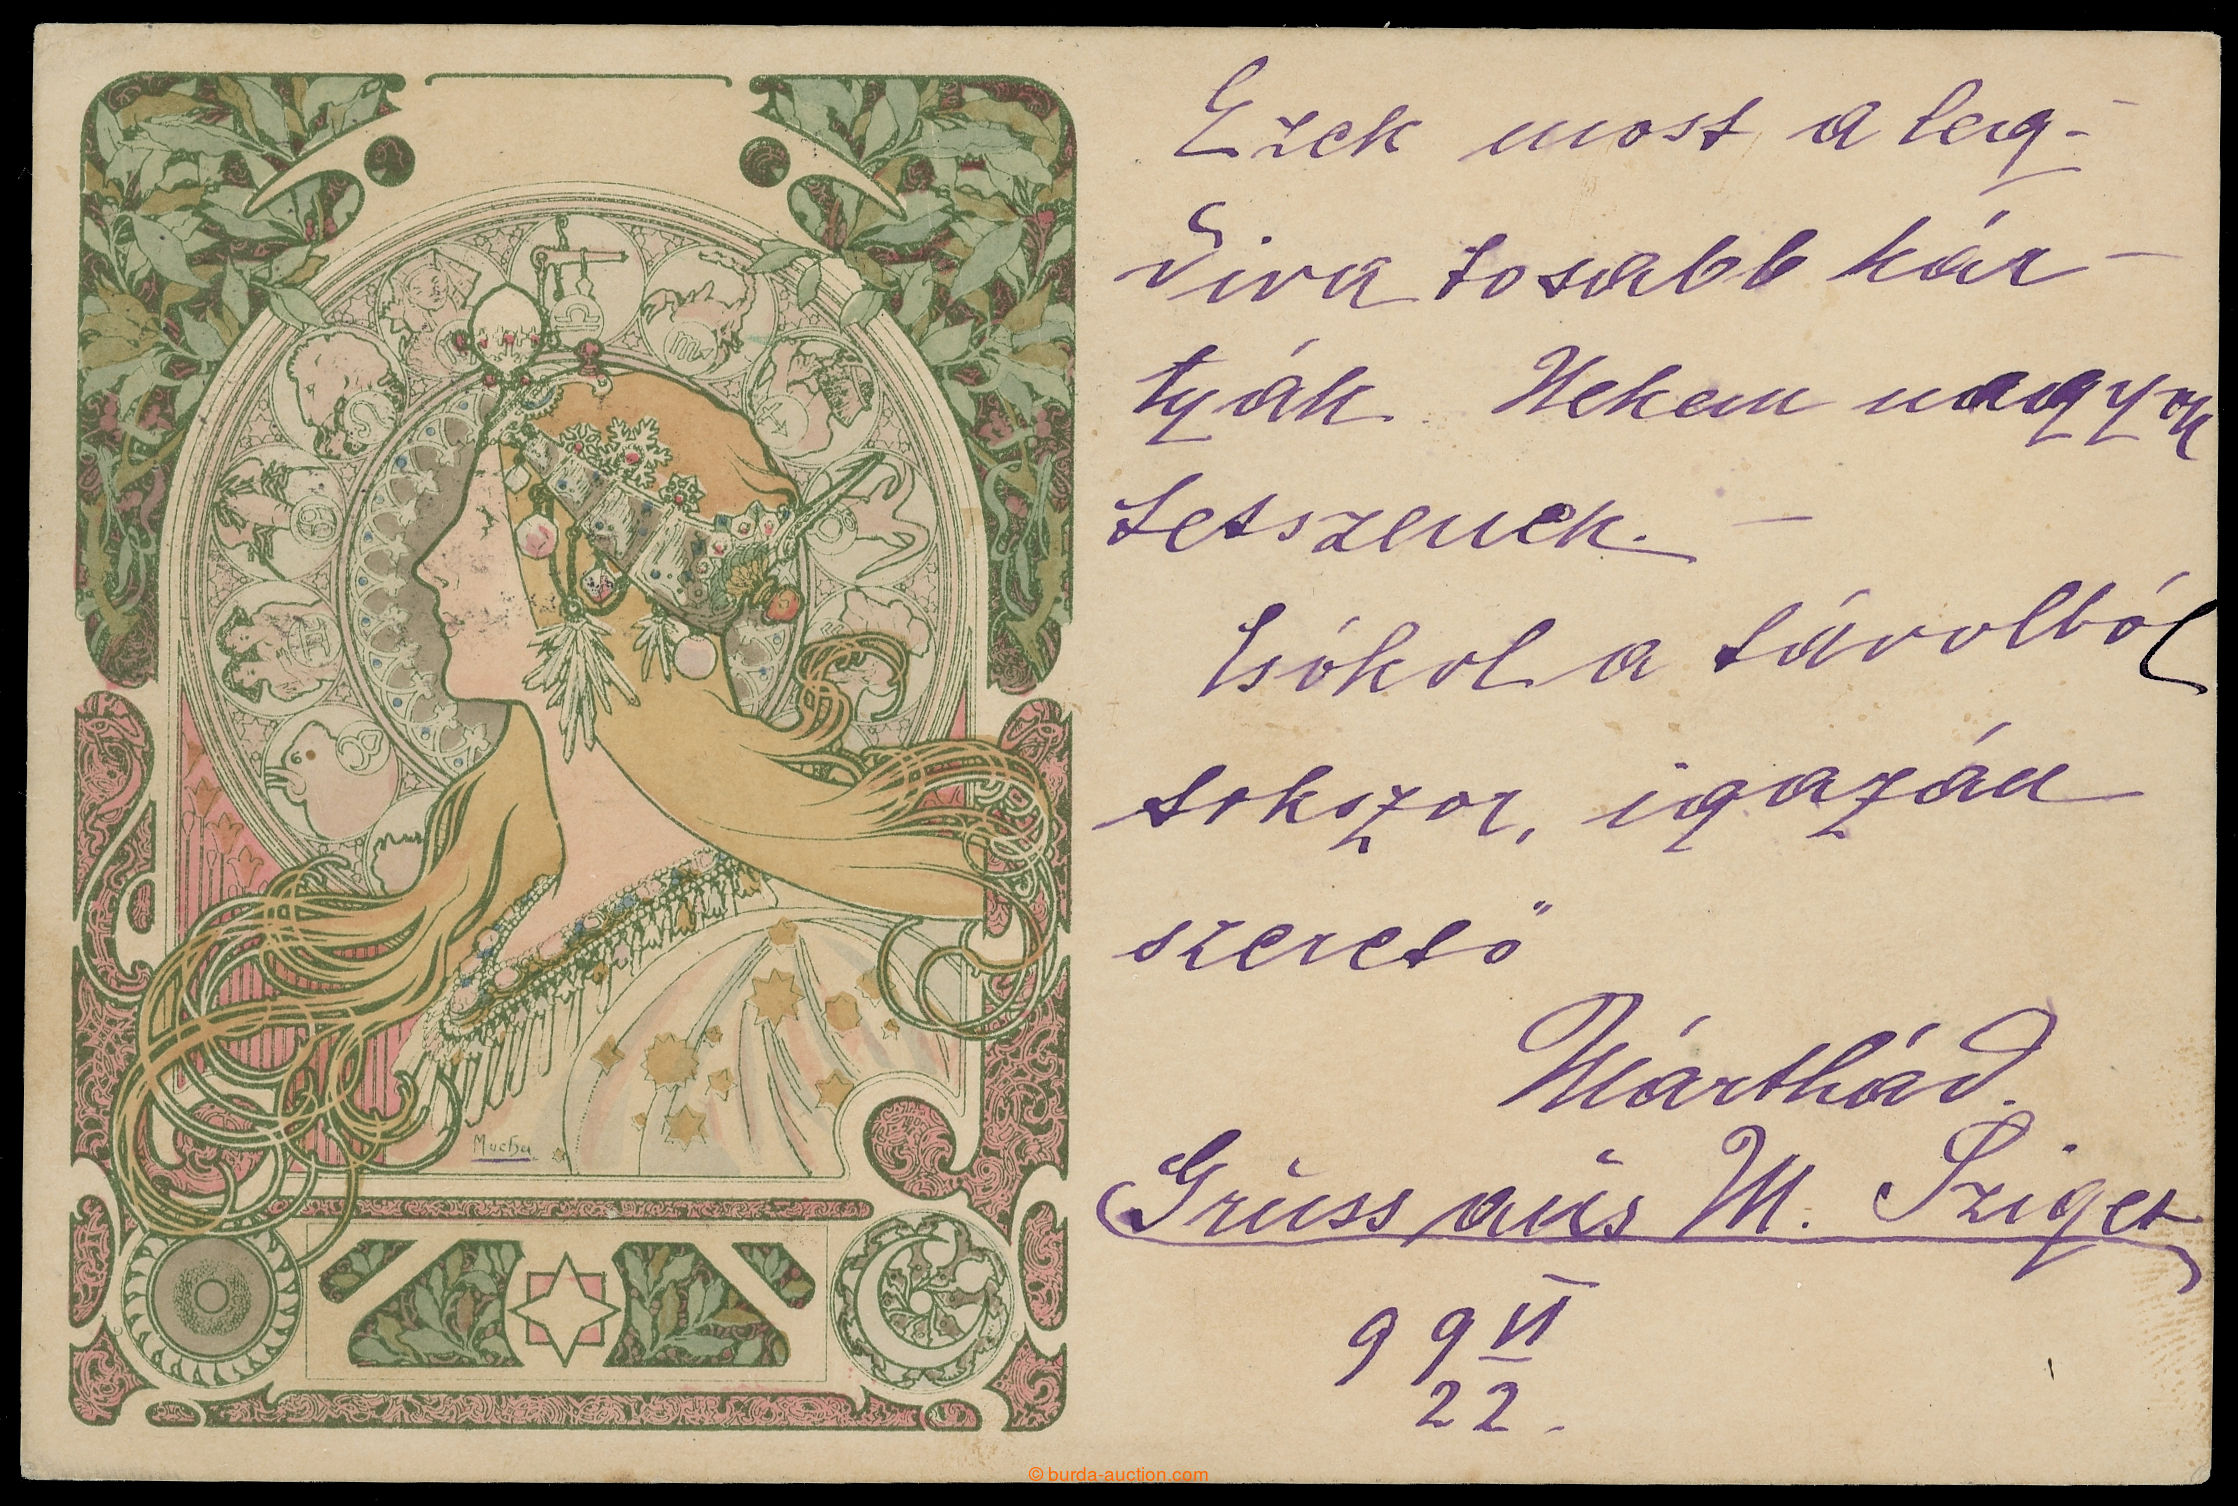 Mucha
Ezek most a leg-
divatosabb kár-
tyák. Nekem nagyon
tetszenek. —
Csókol a távolból
sokszor, igazán
szerető
Márthád.
Grüss aus M. Sziget
99 VI
22.
© burda-auction.com